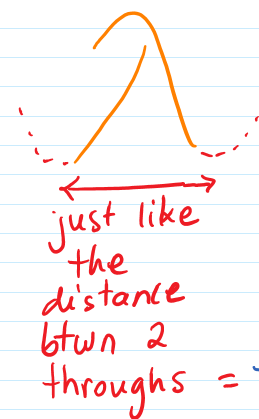 λ
just like
the
distance
btwn 2
throughs =